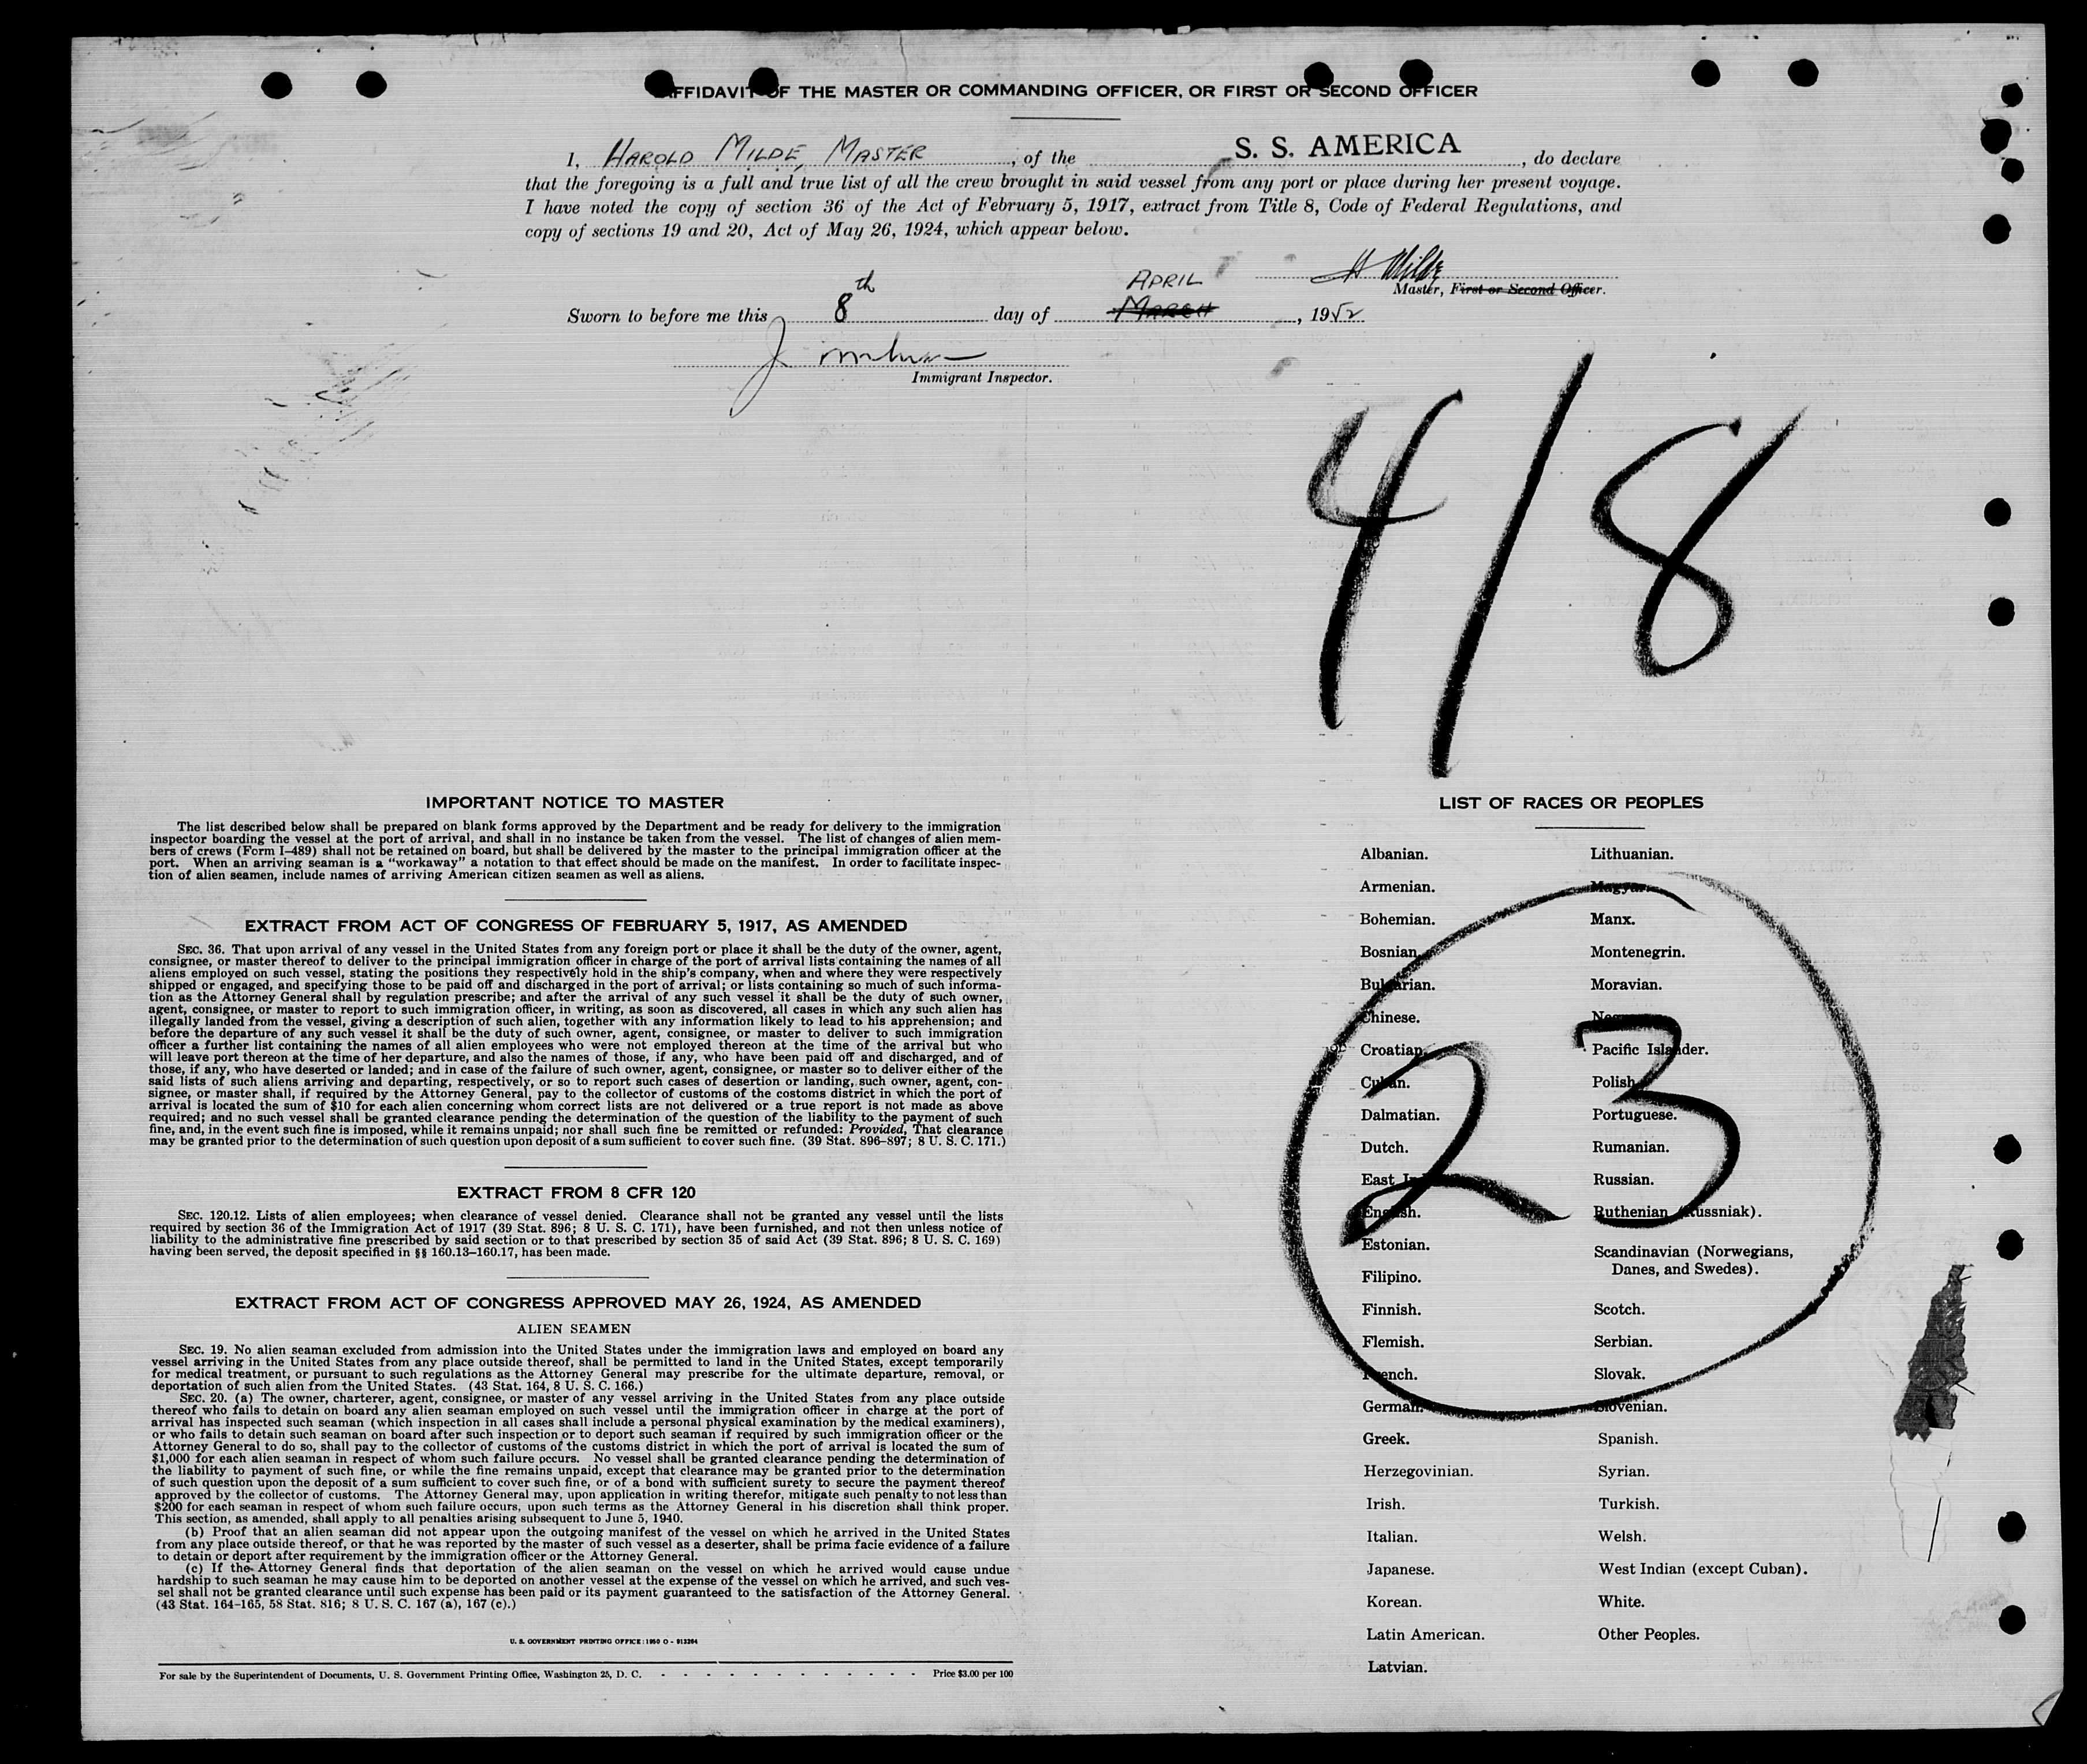 AFFIDAVIT OF THE MASTER OR COMMANDING OFFICER, OR FIRST OR SECOND OFFICER
I, HAROLD MILDE, MASTER, of the S. S. AMERICA, do declare
that the foregoing is a full and true list of all the crew brought in said vessel from any port or place during her present voyage.
I have noted the copy of section 36 of the Act of February 5, 1917, extract from Title 8, Code of Federal Regulations, and
copy of sections 19 and 20, Act of May 26, 1924, which appear below.
H Milde
Master, First or Second Officer.
APRIL
Sworn to before me this 8th day of MARCH, 1952
Immigrant Inspector.
4/8
IMPORTANT NOTICE TO MASTER
The list described below shall be prepared on blank forms approved by the Department and be ready for delivery to the immigration
inspector boarding the vessel at the port of arrival, and shall in no instance be taken from the vessel. The list of changes of alien mem-
bers of crews (Form I-489) shall not be retained on board, but shall be delivered by the master to the principal immigration officer at the
port. When an arriving seaman is a "workaway" a notation to that effect should be made on the manifest. In order to facilitate inspec-
tion of alien seamen, include names of arriving American citizen seamen as well as aliens.
EXTRACT FROM ACT OF CONGRESS OF FEBRUARY 5, 1917, AS AMENDED
SEC. 36. That upon arrival of any vessel in the United States from any foreign port or place it shall be the duty of the owner, agent,
consignee, or master thereof to deliver to the principal immigration officer in charge of the port of arrival lists containing the names of all
aliens employed on such vessel, stating the positions they respectively hold in the ship's company, when and where they were respectively
shipped or engaged, and specifying those to be paid off and discharged in the port of arrival; or lists containing so much of such informa-
tion as the Attorney General shall by regulation prescribe; and after the arrival of any such vessel it shall be the duty of such owner,
agent, consignee, or master to report to such immigration officer, in writing, as soon as discovered, all cases in which any such alien has
illegally landed from the vessel, giving a description of such alien, together with any information likely to lead to his apprehension; and
before the departure of any such vessel it shall be the duty of such owner, agent, consignee, or master to deliver to such immigration
officer a further list containing the names of all alien employees who were not employed thereon at the time of the arrival but who
will leave port thereon at the time of her departure, and also the names of those, if any, who have been paid off and discharged, and of
those, if any, who have deserted or landed; and in case of the failure of such owner, agent, consignee, or master so to deliver either of the
said lists of such aliens arriving and departing, respectively, or so to report such cases of desertion or landing, such owner, agent, con-
signee, or master shall, if required by the Attorney General, pay to the collector of customs of the costoms district in which the port of
arrival is located the sum of $10 for each alien concerning whom correct lists are not delivered or a true report is not made as above
required; and no such vessel shall be granted clearance pending the determination of the question of the liability to the payment of such
fine, and, in the event such fine is imposed, while it remains unpaid; nor shall such fine be remitted or refunded: Provided, That clearance
may be granted prior to the determination of such question upon deposit of a sum sufficient to cover such fine. (39 Stat. 896-897; 8 U. S. C. 171.)
EXTRACT FROM 8 CFR 120
SEC. 120.12. Lists of alien employees; when clearance of vessel denied. Clearance shall not be granted any vessel until the lists
required by section 36 of the Immigration Act of 1917 (39 Stat. 896; 8 U. S. C. 171), have been furnished, and not then unless notice of
liability to the administrative fine prescribed by said section or to that prescribed by section 35 of said Act (39 Stat. 896; 8 U. S. C. 169)
having been served, the deposit specified in §§ 160.13-160.17, has been made.
EXTRACT FROM ACT OF CONGRESS APPROVED MAY 26, 1924, AS AMENDED
ALIEN SEAMEN
SEC. 19. No alien seaman excluded from admission into the United States under the immigration laws and employed on board any
vessel arriving in the United States from any place outside thereof, shall be permitted to land in the United States, except temporarily
for medical treatment, or pursuant to such regulations as the Attorney General may prescribe for the ultimate departure, removal, or
deportation of such alien from the United States. (43 Stat. 164, 8 U. S. C. 166.)
SEC. 20. (a) The owner, charterer, agent, consignee, or master of any vessel arriving in the United States from any place outside
thereof who fails to detain on board any alien seaman employed on such vessel until the immigration officer in charge at the port of
arrival has inspected such seaman (which inspection in all cases shall include a personal physical examination by the medical examiners),
or who fails to detain such seaman on board after such inspection or to deport such seaman if required by such immigration officer or the
Attorney General to do so, shall pay to the collector of customs of the customs district in which the port of arrival is located the sum of
$1,000 for each alien seaman in respect of whom such failure occurs. No vessel shall be granted clearance pending the determination of
the liability to payment of such fine, or while the fine remains unpaid, except that clearance may be granted prior to the determination
of such question upon the deposit of a sum sufficient to cover such fine, or of a bond with sufficient surety to secure the payment thereof
approved by the collector of customs. The Attorney General may, upon application in writing therefor, mitigate such penalty to not less than
$200 for each seaman in respect of whom such failure occurs, upon such terms as the Attorney General in his discretion shall think proper.
This section, as amended, shall apply to all penalties arising subsequent to June 5, 1940.
(b) Proof that an alien seaman did not appear upon the outgoing manifest of the vessel on which he arrived in the United States
from any place outside thereof, or that he was reported by the master of such vessel as a deserter, shall be prima facie evidence of a failure
to detain or deport after requirement by the immigration officer or the Attorney General.
(c) If the Attorney General finds that deportation of the alien seaman on the vessel on which he arrived would cause undue
hardship to such seaman he may cause him to be deported on another vessel at the expense of the vessel on which he arrived, and such ves-
sel shall not be granted clearance until such expense has been paid or its payment guaranteed to the satisfaction of the Attorney General.
(43 Stat. 164-165, 58 Stat. 816; 8 U. S. C. 167 (a), 167 (c).)
U. S. GOVERNMENT PRINTING OFFICE: 1950 O - 913264
For sale by the Superintendent of Documents, U. S. Government Printing Office, Washington 25, D. C. - - - - - - - - - - - Price $3.00 per 100
LIST OF RACES OR PEOPLES
Albanian.
Armenian.
Bohemian.
Bosnian.
Bulgarian.
Chinese.
Croatian.
Cuban.
Dalmatian.
Dutch.
East
English.
Estonian.
Filipino.
Finnish.
Flemish.
French.
German.
Greek.
Herzegovinian.
Irish.
Italian.
Japanese.
Korean.
Latin American.
Latvian.
Lithuanian.
Magyar.
Manx.
Montenegrin.
Moravian.
Pacific Islander.
Polish.
Portuguese.
Rumanian.
Russian.
Ruthenian (Russniak).
Scandinavian (Norwegians,
Danes, and Swedes).
Scotch.
Serbian.
Slovak.
Slovenian.
Spanish.
Syrian.
Turkish.
Welsh.
West Indian (except Cuban).
White.
Other Peoples.
23